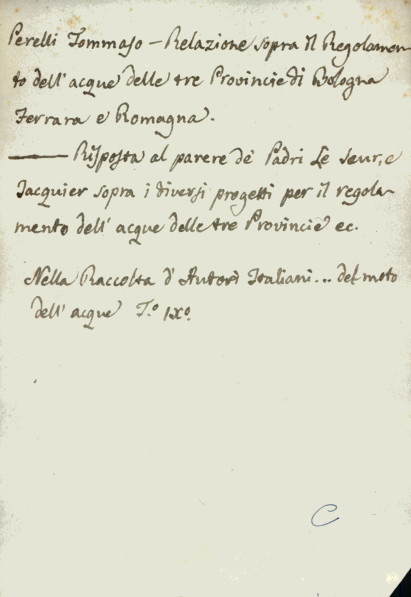 Perelli Tommaso – Relazione sopra il Regolamen-
to dell'acque delle tre Provincie di Bologna
Ferrara e Romagna.
—— Risposta al parere de' Padri Le Seur, e
Jacquier sopra i diversi progetti per il regola-
mento dell'acque delle tre Provincie ec.
Nella Raccolta d'Autori Italiani... del moto
dell'acque T.º IXº.
C